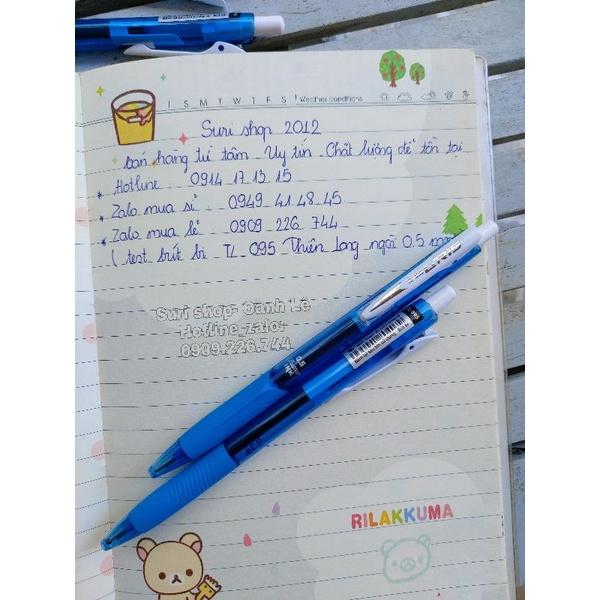 S M T W T F S ! Weather conditions
Suri shop 2012
bán hàng từ tâm - Uy tín - Chất lượng để tồn tại
* Hotline : 0914 17 13 15
* Zalo mua sỉ : 0949 41 48 45
* Zalo mua lẻ : 0909 226 744
( test bút bi TL 095 Thiên Long ngòi 0.5 mm
Suri shop- Oanh Lê
Hotline_zalo:
0909.226.744
0.5
INK
RILAKKUMA